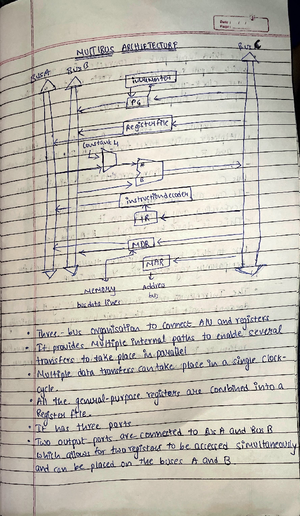 Date :
Page :
MULTIBUS ARCHITECTURE
BUS A
BUS B
BUS C
Incrementer
PC
Register file
Constant 4
A
B
instruction decoder
IR
MDR
MAR
Memory
bus data lines
Address
bus
• Three-bus organisation to connect ALU and registers
• It provides multiple internal paths to enable several
transfers to take place in parallel
• Multiple data transfers can take place in a single clock-
cycle.
• All the general-purpose registers are combined into a
Register file.
• It has three ports
• Two output ports are connected to Bus A and Bus B
which allows for two registers to be accessed simultaneously
and can be placed on the buses A and B.